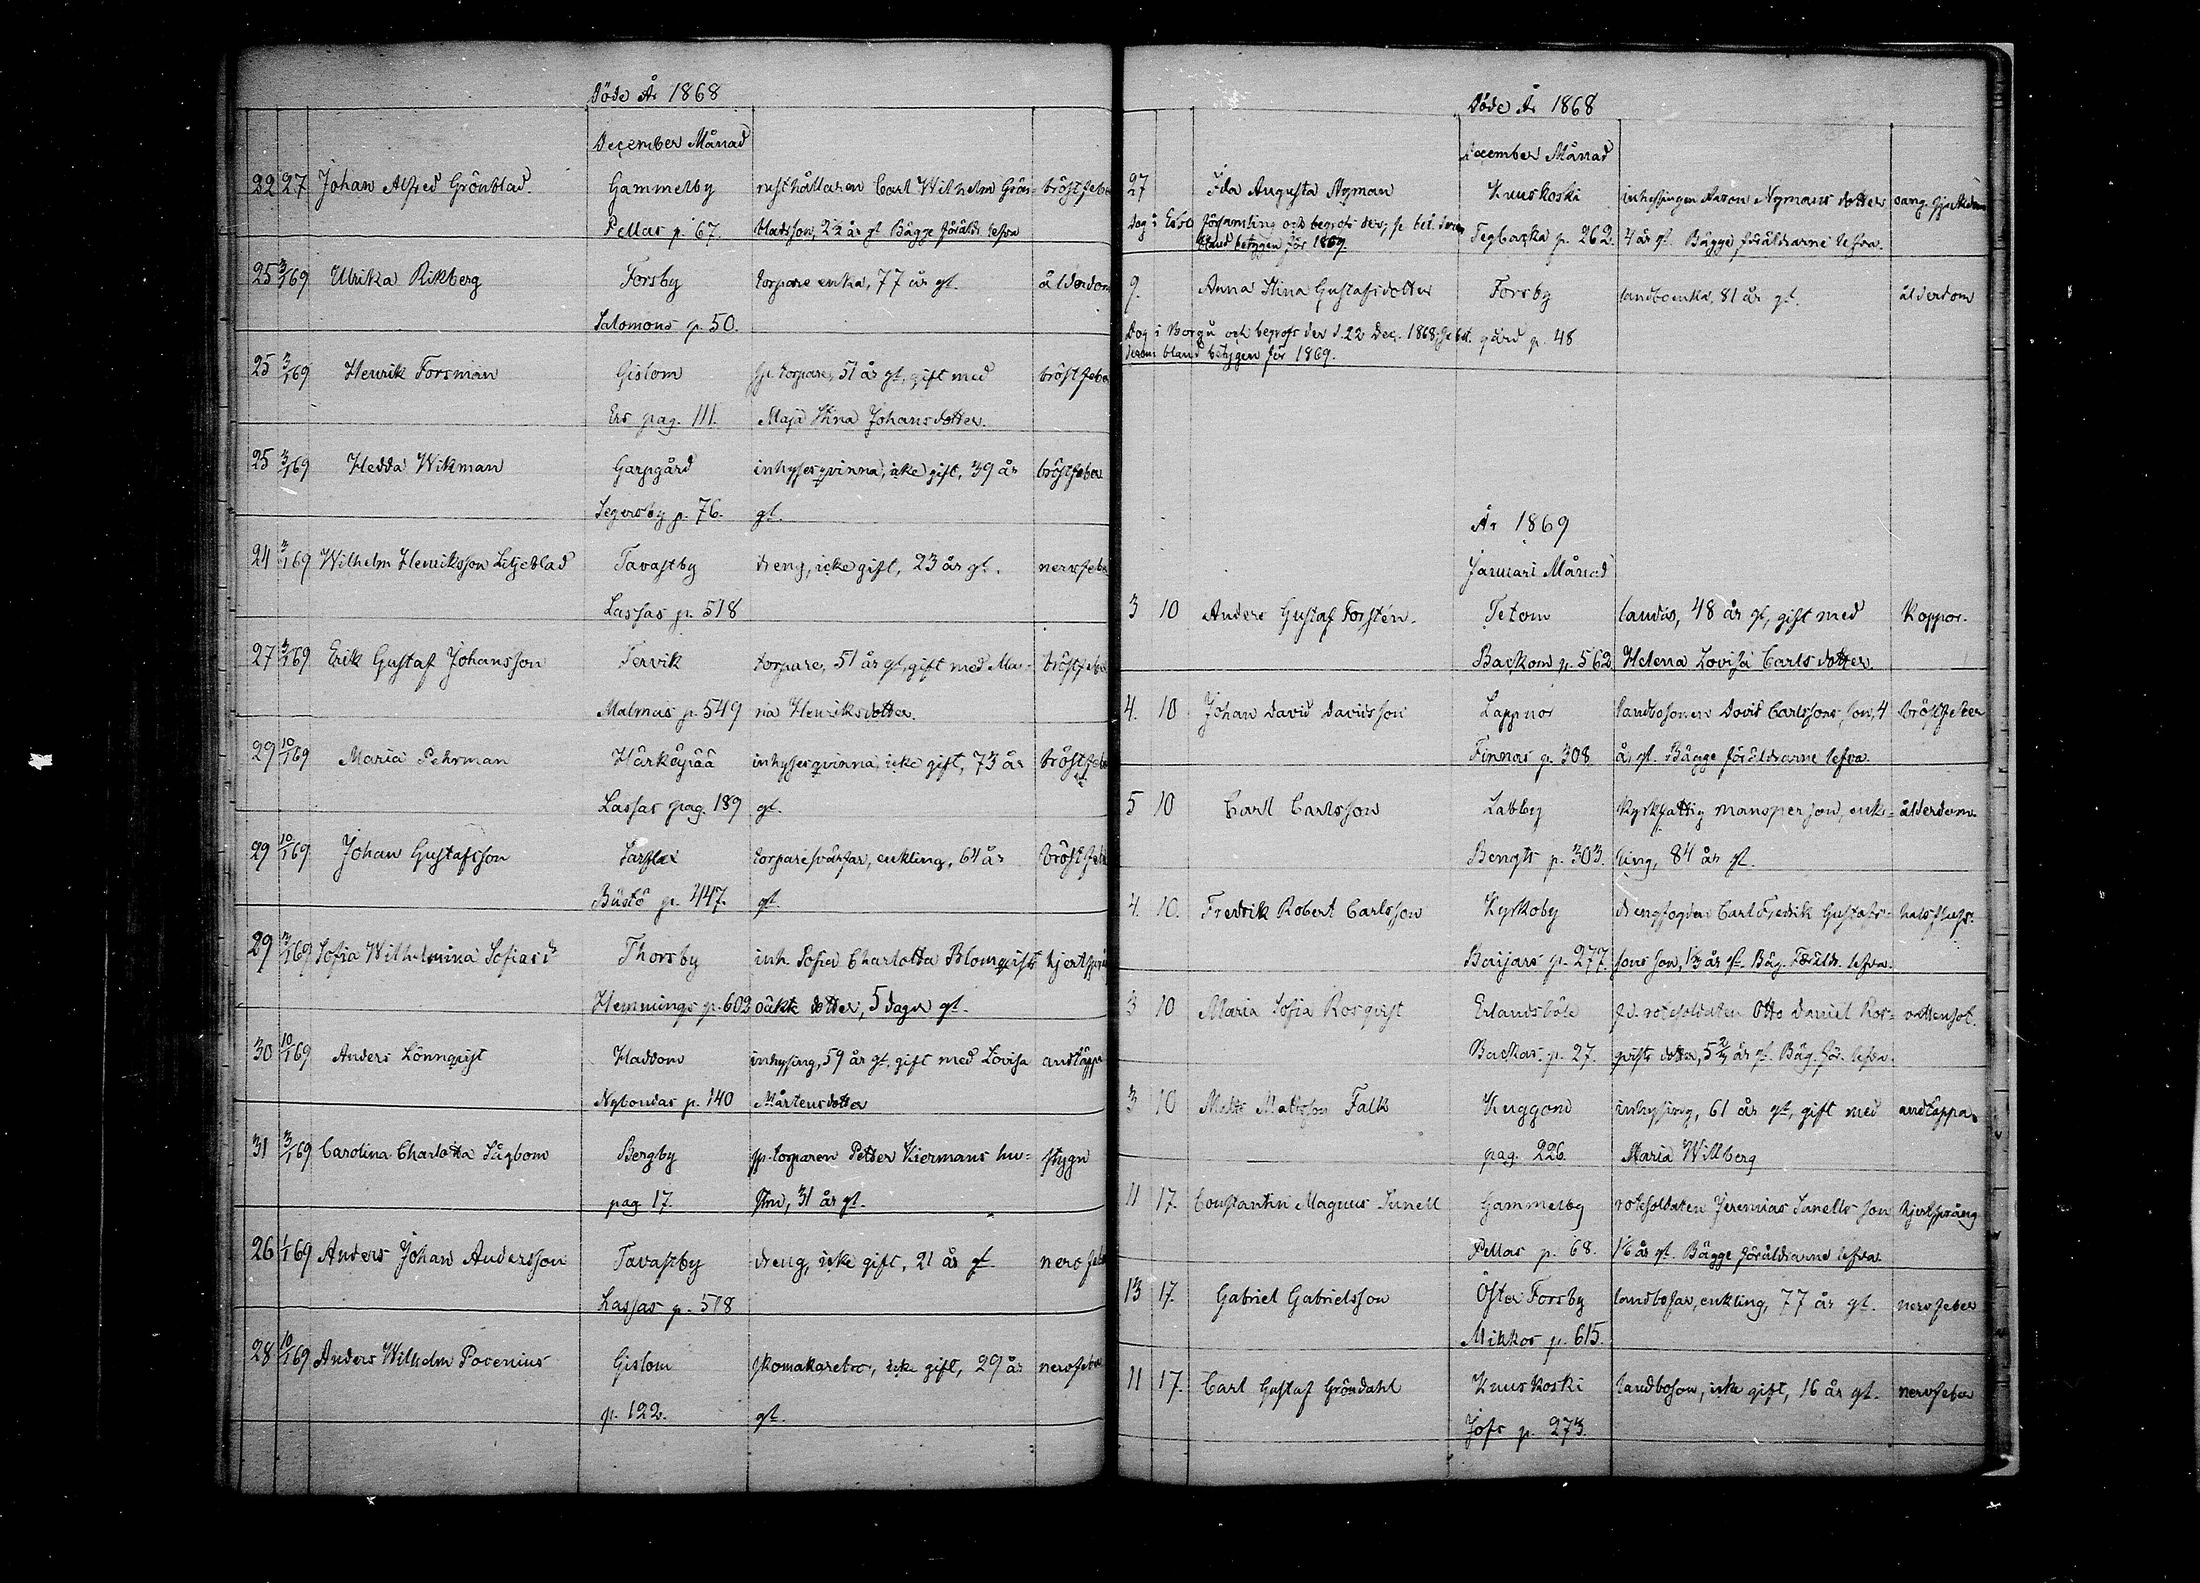 Döde År 1868
December Månad
22 27 Johan Alfred Grönblad Gammelby rusthållaren Carl Wilhelm Grön- bröstfeber
Pellas p. 67. bladsson, 2½ år gl. Bägge föräldr. lefva
25 3/1 69 Ulrika Rikberg Forsby torpare enka, 77 år gl. ålderdom
Salomons p. 50.
25 3/1 69 Henrik Forsman Gislom torpare, 51 år gl, gift med bröstfeber
Ers pag. 111. Maja Stina Johansdotter.
25 3/1 69 Hedda Wikman Garpgård inhysesqvinna, icke gift, 39 år bröstfeber
Segersby p. 76. gl.
24 3/1 69 Wilhelm Henriksson Liljeblad Tavastby dreng, icke gift, 23 år gl. nervfeber
Lassas p. 518
27 3/1 69 Erik Gustaf Johansson Tervik torpare, 51 år gl, gift med Ma- bröstfeber
Malmas p. 549 ria Henriksdotter.
29 10/1 69 Maria Pehrman Härkäpää inhysesqvinna, icke gift, 73 år bröstfeber
Lassas pag. 189 gl.
29 10/1 69 Johan Gustafsson Sarflax torparesvärfar, enkling, 64 år bröstfeber
Bästö p. 447. gl.
29 3/1 69 Sofia Wilhelmina Sofias d. Thorsby inh. Sofia Charlotta Blomqvists hjertspr
Hemmings p. 602 oäkta dotter, 5 dagar gl.
30 10/1 69 Anders Lönnqvist Haddom inhysing, 59 år gl, gift med Lovisa andtäppa
Nybondas p. 140 Mårtensdotter
31 3/1 69 Carolina Charlotta Sågbom Bergby torparen Petter Kiermans hu- stygn
pag 17. stru, 31 år gl.
26 1/1 69 Anders Johan Andersson Tavastby dreng, icke gift, 21 år gl. nervfeber
Lassas p. 518
28 10/1 69 Anders Wilhelm Pocenius Gislom skomakarebr., icke gift, 29 år nervfeber
p. 122. gl.
Döde År 1868
December Månad
27 Ida Augusta Nyman Kuuskoski inhysingen Aaron Nymans dotter
Dog i Esbo församling och begrofs der, se bet. derom Tegbacka p. 262. 4 år gl. Bägge föräldrarne lefva.
bland betygen för 1869.
9. Anna Stina Gustafsdotter Forsby landboenka, 81 år gl. ålderdom
Dog i Borgå och begrofs der d. 22 Dec. 1868, se bet. gård p. 48
derom bland betygen för 1869.
År 1869
Januari Månad
3 10 Anders Gustaf Forstén. Tetom landbo, 48 år gl, gift med Koppor.
Backom p. 562 Helena Lovisa Carlsdotter.
4. 10 Johan David Davidsson Lappnor landbosonen David Carlssons son, 4 bröstfeber
Finnas p. 308 år gl. Bägge föräldrarne lefva.
5 10 Carl Carlsson Labby Kyrkfattig mansperson, enk- ålderdom
Bengts p. 303. ling, 84 år gl.
4. 10. Fredrik Robert Carlsson Kyrkoby drengfogden Carl Fredrik Gustafs-
Barjars p. 277. sons son, 1¾ år gl. Bäg. Föräldr. lefva.
3 10 Maria Sofia Rosqvist Erlandsböle f.d. rotesoldaten Otto Daniel Ros- vattensot.
Backas p. 27. qvists dotter, 5¾ år gl. Bäg. för. lefva.
3 10 Matts Mattsson Falk Kuggom inhysing, 61 år gl, gift med andtäppa
pag. 226 Maria Willberg
11 17. Constantin Magnus Sunell Gammelby rotesoldaten Jeremias Sunells son hjertsprång
Pellas p. 68. år gl. Bägge föräldrarne lefva.
13 17. Gabriel Gabrielsson Öster Forsby landbofar, enkling, 77 år gl. nervfeber
Mikkos p. 615.
11 17. Carl Gustaf Gröndahl Kuuskoski landboson, icke gift, 16 år gl. nervfeber
Jofs p. 273.